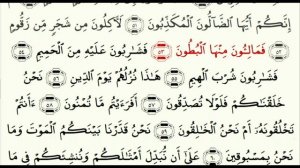 إِنَّكُمْ أَيُّهَا الضَّالُّونَ الْمُكَذِّبُونَ ٥١ لَآكِلُونَ مِن شَجَرٍ مِّن زَقُّومٍ
٥٢ فَمَالِئُونَ مِنْهَا الْبُطُونَ ٥٣ فَشَارِبُونَ عَلَيْهِ مِنَ الْحَمِيمِ ٥٤
فَشَارِبُونَ شُرْبَ الْهِيمِ ٥٥ هَٰذَا نُزُلُهُمْ يَوْمَ الدِّينِ ٥٦ نَحْنُ
خَلَقْنَاكُمْ فَلَوْلَا تُصَدِّقُونَ ٥٧ أَفَرَأَيْتُم مَّا تُمْنُونَ ٥٨ ءَأَنتُمْ
تَخْلُقُونَهُ أَمْ نَحْنُ الْخَالِقُونَ ٥٩ نَحْنُ قَدَّرْنَا بَيْنَكُمُ الْمَوْتَ وَمَا
نَحْنُ بِمَسْبُوقِينَ ٦٠ عَلَىٰ أَن نُّبَدِّلَ أَمْثَالَكُمْ وَنُنشِئَكُمْ فِي مَا